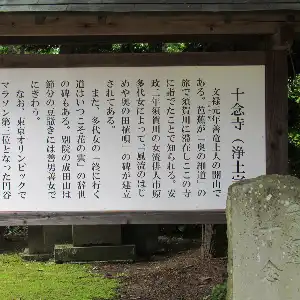 十念寺(浄土宗
文禄元年善竜上人の開山で
ある。芭蕉が「奥の細道」の
旅で須賀川に滞在しこの寺
に詣でたことで知られる。安
政二年須賀川の女流俳人市原
多代女によって「風流のはじ
めや奥の田植唄」の碑が建立
されてある。
また、多代女の「終に行く
道はいつこそ花の雲」の辞世
の碑もある。別院の成田山は
節分の豆撒きには善男善女で
にぎわう。
なお、東京オリンピックで
マラソン第三位となった円谷
十念